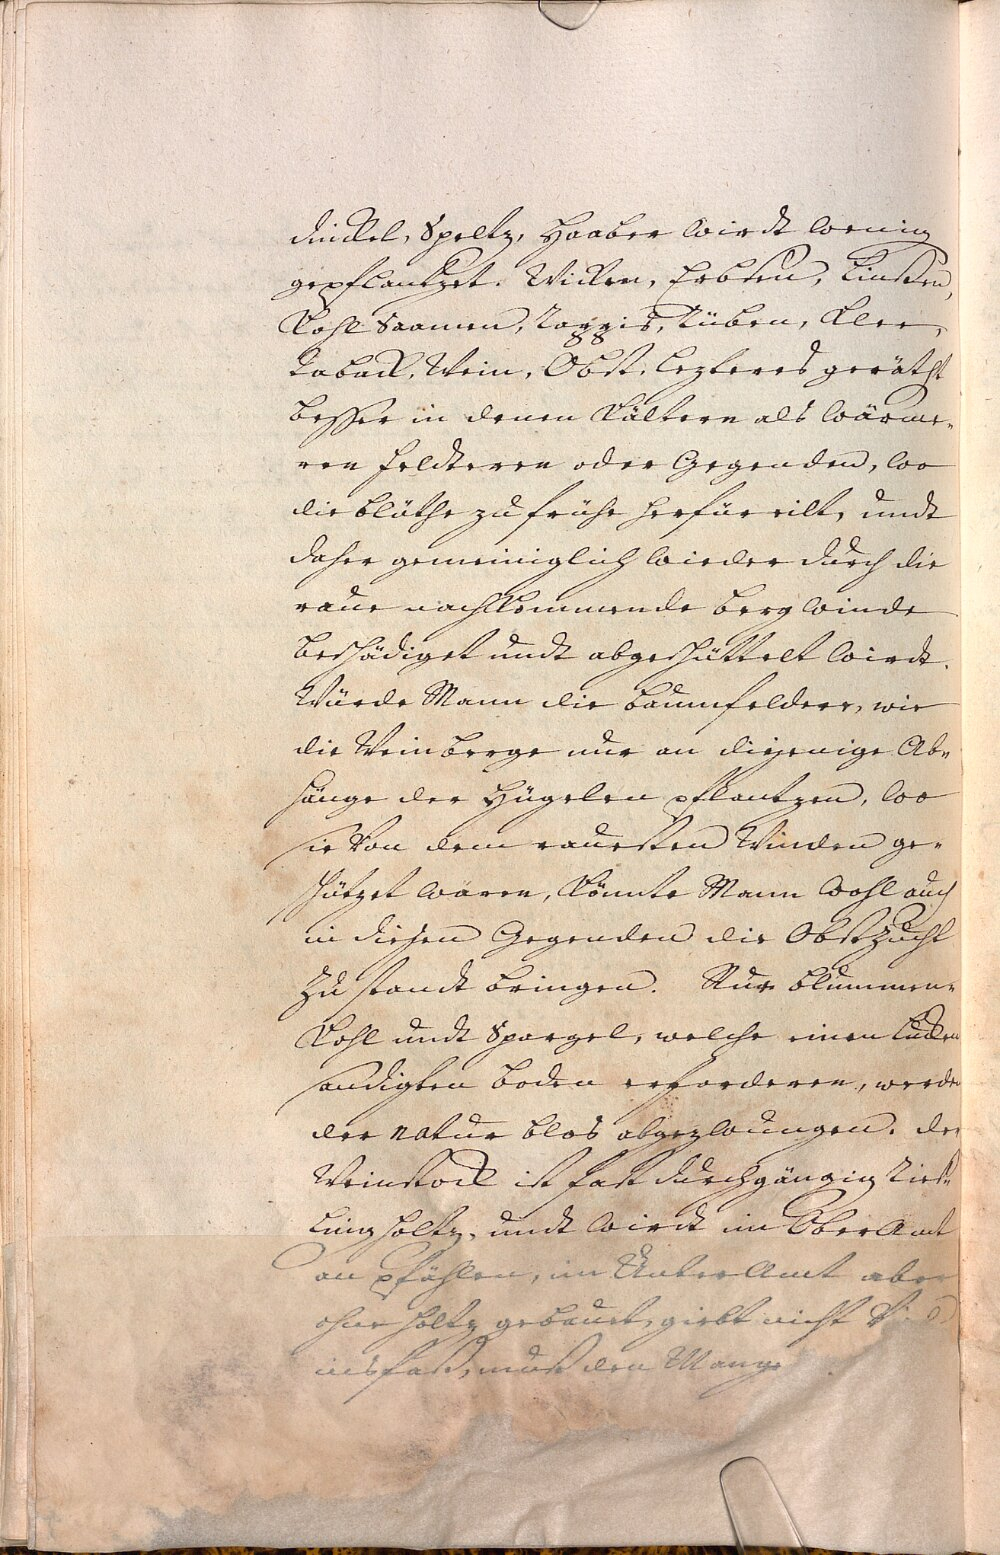 dinckel, Speltz, Haaber wirdt wenig
gepflantzet. Wicken, Erbsen, Linsen,
Kohl Saamen, Raggis, Rüben, Klee,
Taback, Wein, Obst, lezteres geräth
besser in denen Kältern als wärme-
ren Feldteren oder Gegenden, wo
die blüthe zu frühe herfür eilt, undt
daher gemeiniglich wieder durch die
raue nachkommende berg winde
beschädiget undt abgeschüttelt wirdt.
Würde Mann die baumfelder, wie
die Weinberge nur an diejenige Ab-
hänge der Hügelen pflantzen, wo
sie von dem rauesten Winden ge-
schützet wären, könnte Mann wohl auch
in diesen Gegenden die Obstzucht
zu standt bringen. Nur blummen-
Kohl undt Spargel, welche einen
sandigten boden erforderen, werden
der natur blos abgezwungen. der
Weinstock ist fast durchgängig Ries-
ling holtz, undt wirdt im OberAmt
an pfählen, im UnterAmt aber
ohne holtz gebauet, giebt nicht
ins faß, muß den